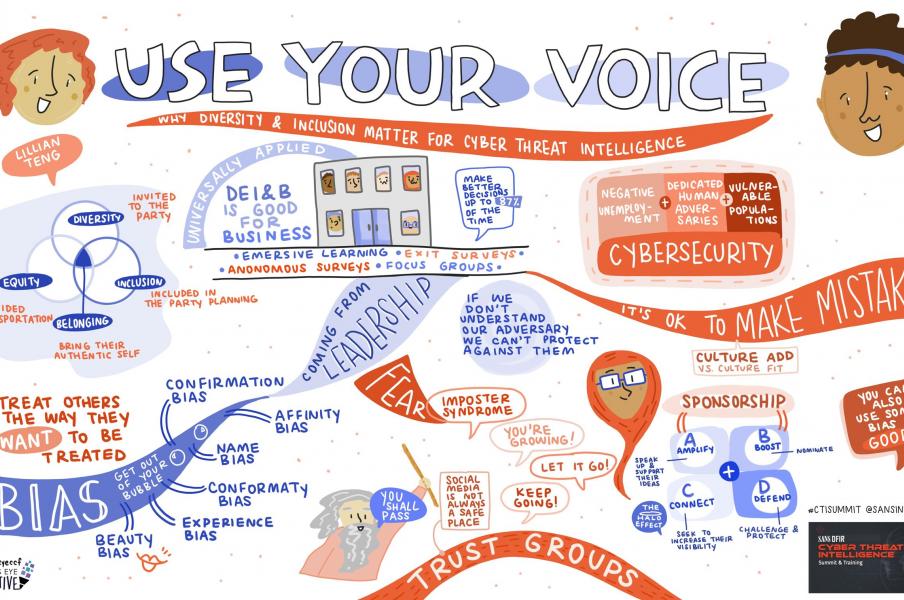 USE YOUR VOICE
WHY DIVERSITY & INCLUSION MATTER FOR CYBER THREAT INTELLIGENCE
LILLIAN
TENG
INVITED
TO THE
PARTY
DIVERSITY
EQUITY
INCLUSION
INCLUDED IN
THE PARTY PLANNING
BELONGING
BRING THEIR
AUTHENTIC SELF
UNIVERSALLY APPLIED
DEI&B
IS GOOD
FOR
BUSINESS
MAKE
BETTER
DECISIONS
UP TO 87%
OF THE
TIME
• EMERSIVE LEARNING • EXIT SURVEYS •
• ANONOMOUS SURVEYS • FOCUS GROUPS •
NEGATIVE
UNEMPLOY-
MENT
+
DEDICATED
HUMAN
ADVER-
SARIES
+
VULNER-
ABLE
POPULA-
TIONS
CYBERSECURITY
COMING FROM
LEADERSHIP
IF WE
DON'T
UNDERSTAND
OUR ADVERSARY
WE CAN'T PROTECT
AGAINST THEM
IT'S OK TO MAKE MISTAK
CULTURE ADD
VS. CULTURE FIT
TREAT OTHERS
THE WAY THEY
WANT TO BE
TREATED
BIAS
GET OUT
OF YOUR
BUBBLE
CONFIRMATION
BIAS
AFFINITY
BIAS
NAME
BIAS
CONFORMATY
BIAS
EXPERIENCE
BIAS
BEAUTY
BIAS
FEAR
IMPOSTER
SYNDROME
YOU'RE
GROWING!
LET IT GO!
KEEP
GOING!
SOCIAL
MEDIA IS
NOT ALWAYS
A SAFE
PLACE
YOU
SHALL
PASS
TRUST GROUPS
SPONSORSHIP
A
AMPLIFY
SPEAK
UP &
SUPPORT
THEIR
IDEAS
B
BOOST
NOMINATE
+
C
CONNECT
SEEK TO
INCREASE THEIR
VISIBILITY
D
DEFEND
CHALLENGE &
PROTECT
THE
HALO
EFFECT
YOU CA
ALSO
USE SOM
BIAS
GOOD
#CTISUMMIT @SANSIN
SANS DFIR
CYBER THREAT
INTELLIGENCE
Summit & Training